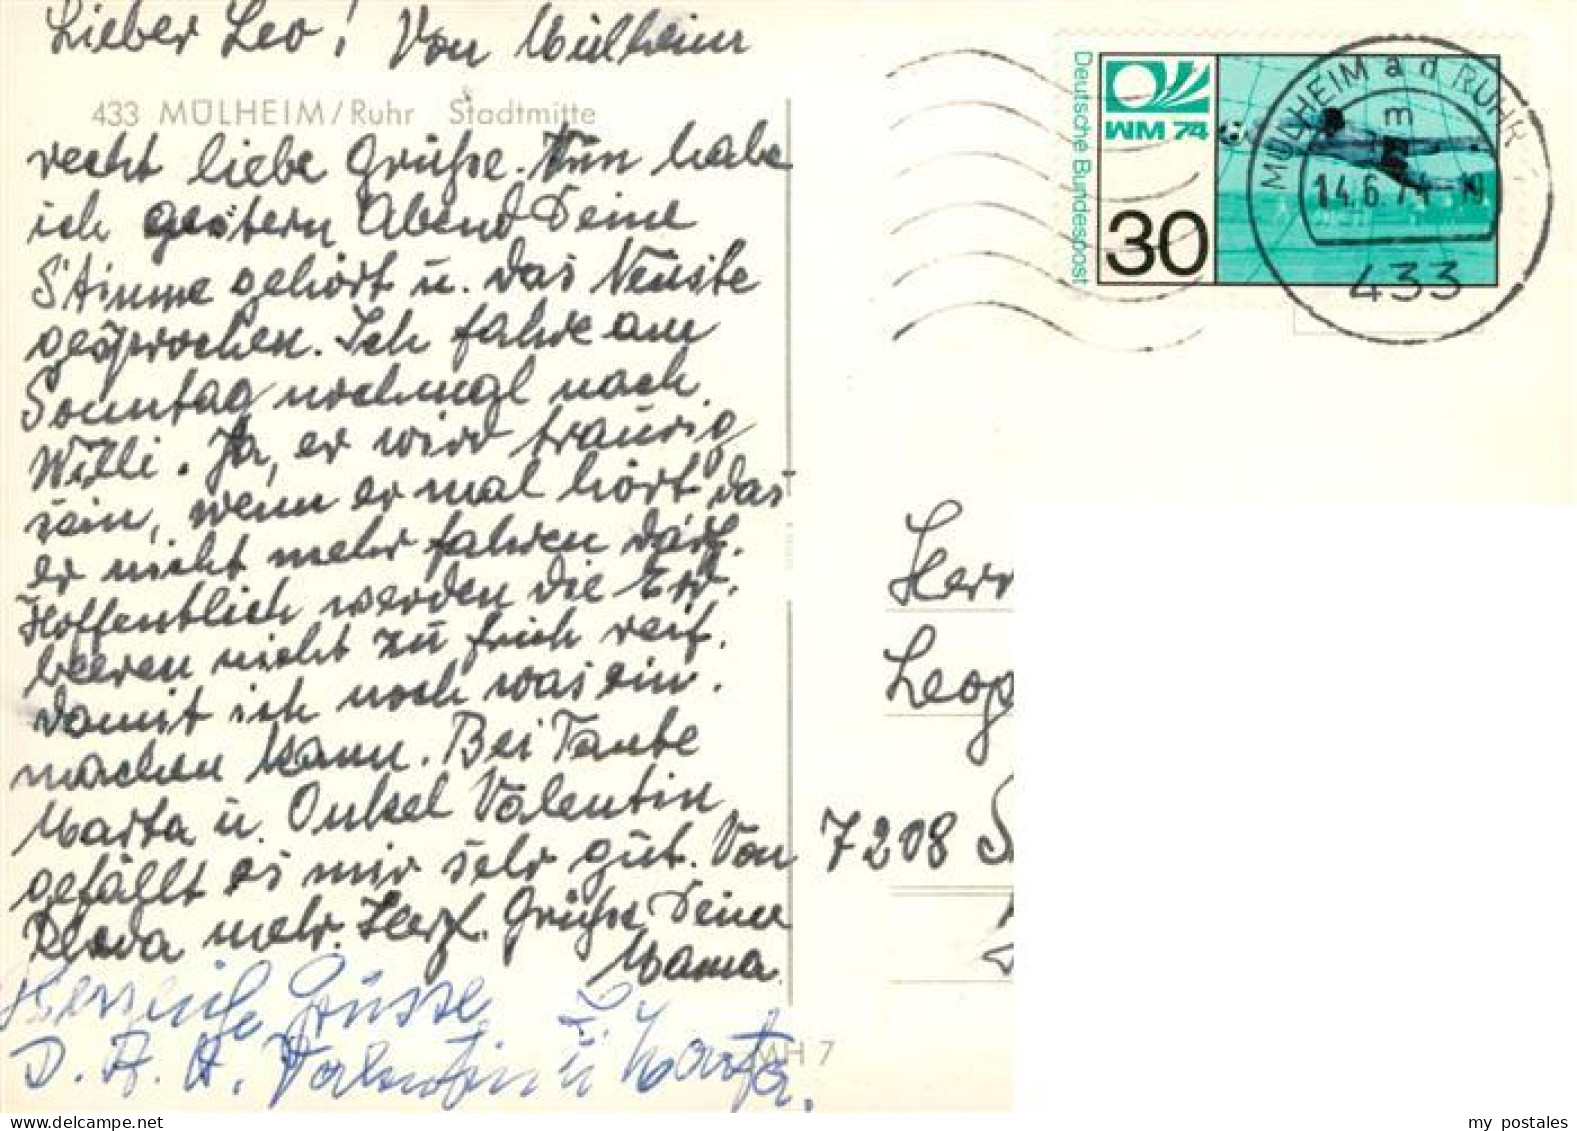 Lieber Leo! Von Mülheim
433 MÜLHEIM/Ruhr Stadtmitte
recht liebe Grüße. Nun habe
ich gestern Abend Deine
Stimme gehört u. das Neuste
gesprochen. Ich fahre am
Sonntag nochmal nach
Willi. Ja, er wird traurig
sein, wenn er mal hört das
er nicht mehr fahren darf.
Hoffentlich werden die Erd-
beeren nicht zu früh reif,
damit ich noch was ein-
machen kann. Bei Tante
Marta u. Onkel Valentin
gefällt es mir sehr gut. Von
mehr. Herzl. Grüße Deine
Mama
Herzliche Grüsse
Valentin u Marta.
MH 7
Deutsche Bundespost
WM 74
30
MÜLHEIM a d RUHR
m
14.6.74-19
433
Herr
Leop
7208 S
my postales